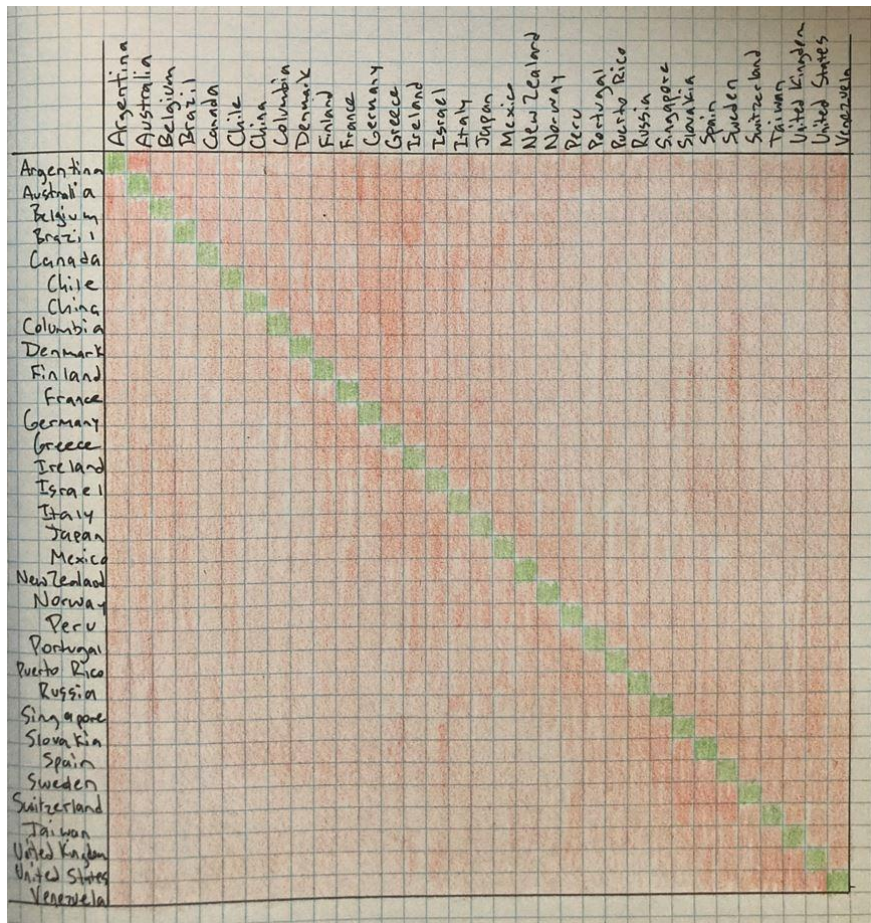 Argentina
Australia
Belgium
Brazil
Canada
Chile
China
Columbia
Denmark
Finland
France
Germany
Greece
Ireland
Israel
Italy
Japan
Mexico
New Zealand
Norway
Peru
Portugal
Puerto Rico
Russia
Singapore
Slovakia
Spain
Sweden
Switzerland
Taiwan
United Kingdom
United States
Venezuela
Argentina
Australia
Belgium
Brazil
Canada
Chile
China
Columbia
Denmark
Finland
France
Germany
Greece
Ireland
Israel
Italy
Japan
Mexico
New Zealand
Norway
Peru
Portugal
Puerto Rico
Russia
Singapore
Slovakia
Spain
Sweden
Switzerland
Taiwan
United Kingdom
United States
Venezuela